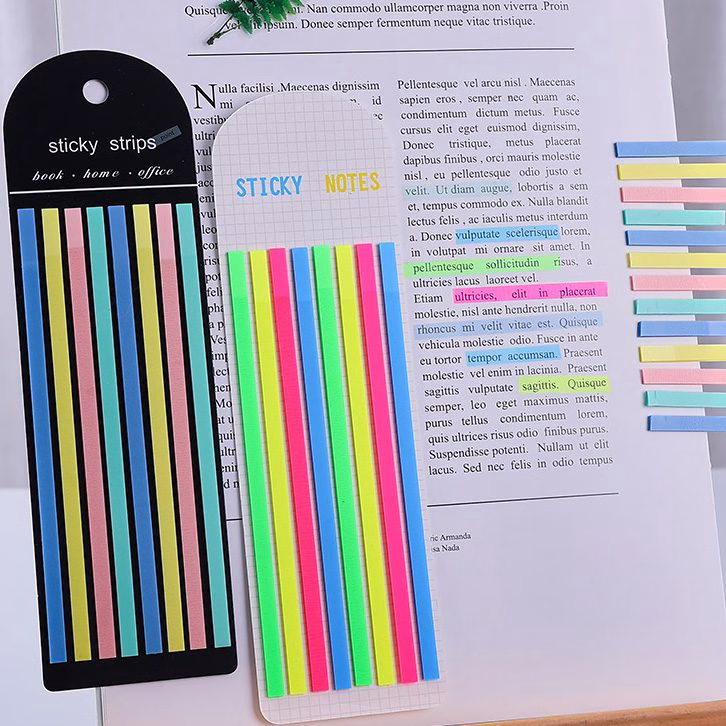 Quisque . Nan commodo ullamcorper magna non viverra .Proin
vel ipsum. Donec semper fermentum neque vitae tristique.
sticky strips
point
book · home · office
STICKY NOTES
Nulla facilisi .Maecenas dignissim
mi id
Pellentesque vel arcu nisl . Maecenas
sapien eros , semper nec quam ac,
condimentum dictum metus. Fusce
cursus elit eget euismod dignissim,
Donec tristique, metus placerat
dapibus finibus , orci mauris molestie
nisl , eu pellentesque odio justo et
velit. Ut diam augue, lobortis a sem
et, tempus commodo ex. Nulla blandit
lectus felis , ac iaculis metus interdum
a. Donec vulputate scelerisque lorem,
in volutpat mi ornare sit amet. In
pellentesque sollicitudin risus, a
ultricies lacus laoreet vel.
Etiam ultricies, elit in placerat
molestie, nisl ante hendrerit nulla, non
rhoncus mi velit vitae est. Quisque
vehicula molestie odio. Fusce in ante
eu tortor tempor accumsan. Praesent
molestie vel enim in lacinia. Praesent
sagittis vulputate sagittis. Quisque
semper, leo eget maximus mattis,
purus tellus condimentum lorem,
quis ultrices risus odio finibus purus.
Suspendisse potenti. Nullam ut elit
lacus. Sed nec felis in odio tempus
Armanda
Nada